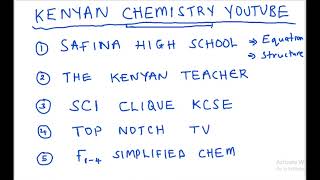 KENYAN CHEMISTRY YOUTUBE
① SAFINA HIGH SCHOOL → Equation
→ Structure
② THE KENYAN TEACHER
③ SCI CLIQUE KCSE
④ TOP NOTCH TV
⑤ F1-4 SIMPLIFIED CHEM
Activate W